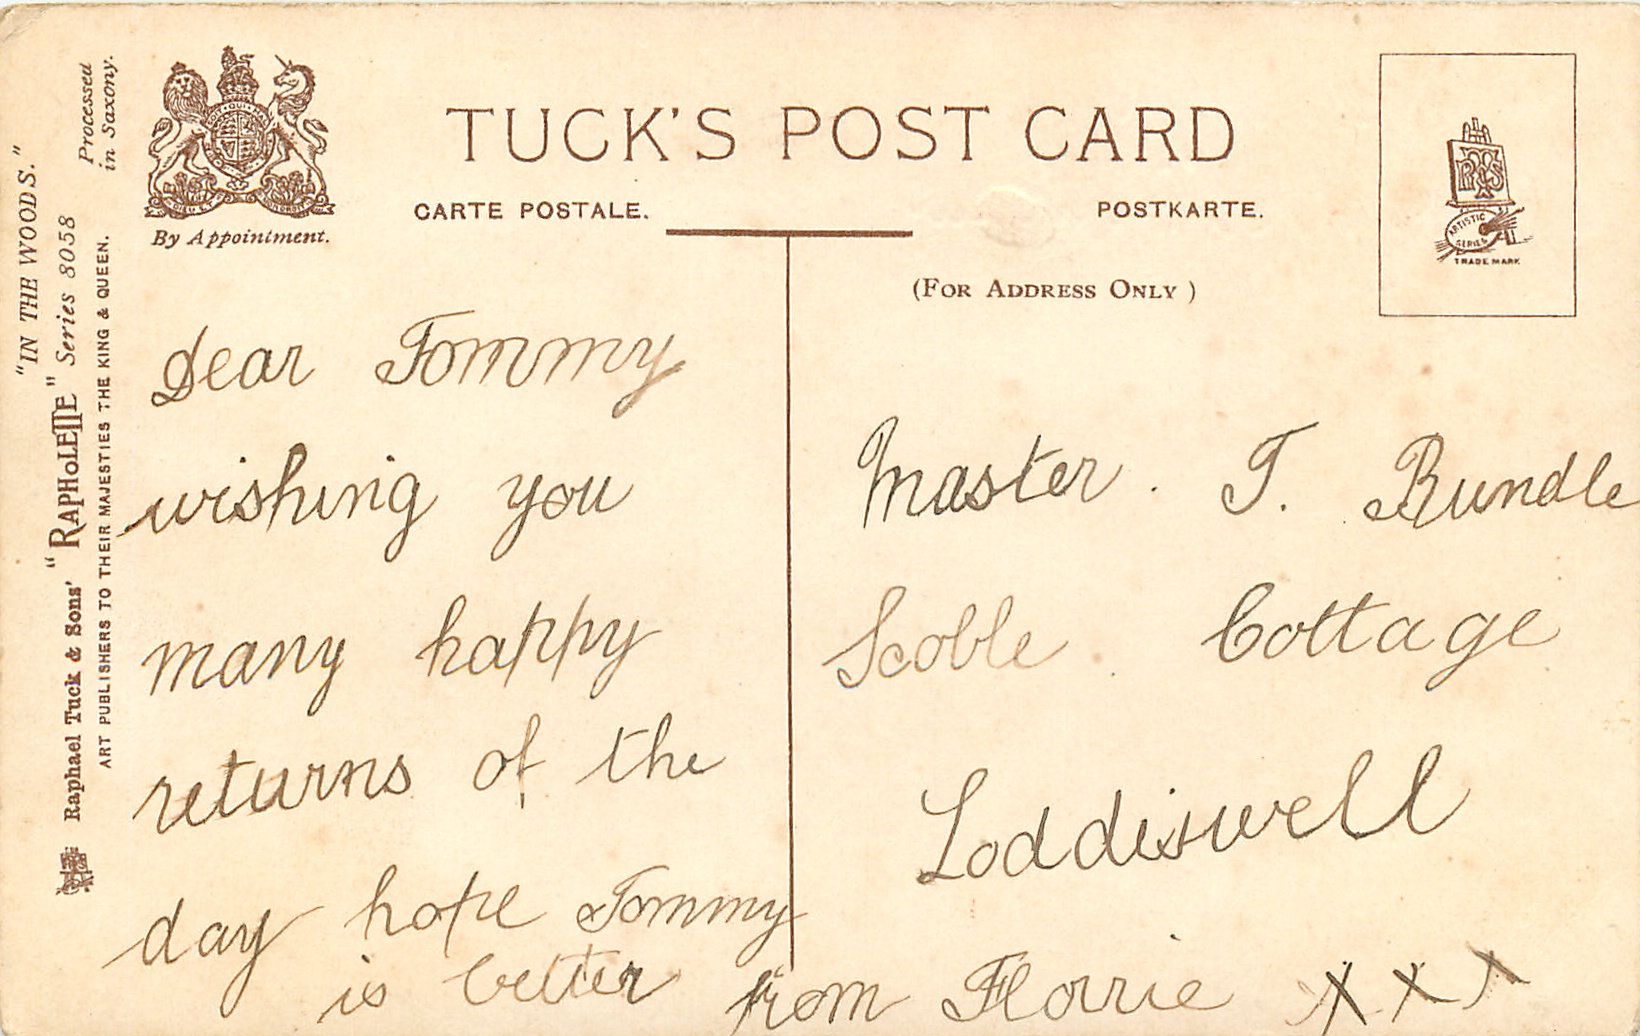 "IN THE WOODS."
Raphael Tuck & Sons' "RAPHOLETTE" Series 8058
Processed
in Saxony.
ART PUBLISHERS TO THEIR MAJESTIES THE KING & QUEEN.
By Appointment.
TUCK'S POST CARD
CARTE POSTALE.
POSTKARTE.
(FOR ADDRESS ONLY)
ARTISTIC
SERIES
TRADE MARK
Dear Tommy
wishing you
many happy
returns of the
day hope Tommy
is better from Florrie x x x
Master. T. Rundle
Scoble Cottage
Loddiswell